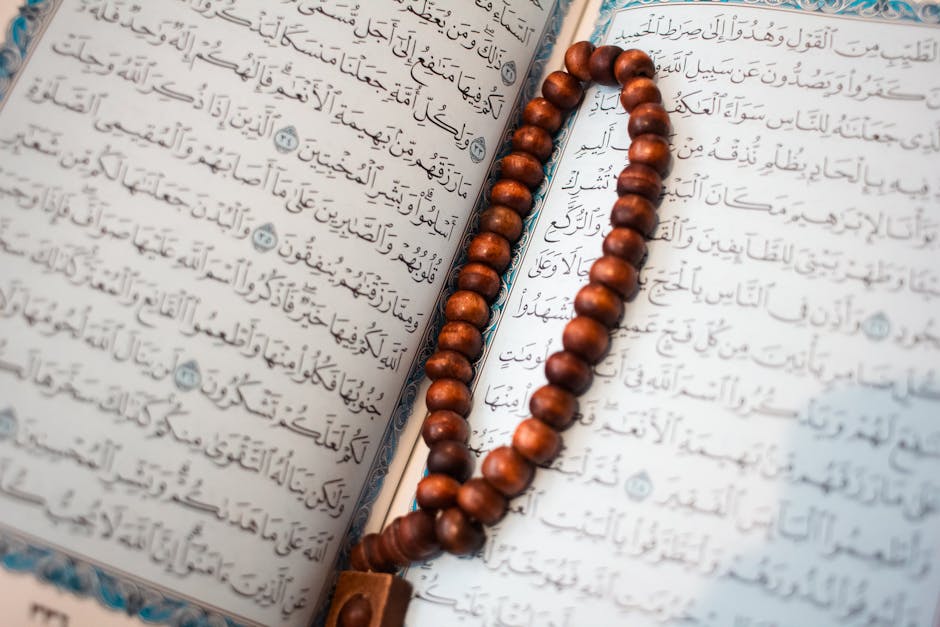 ٱلطَّيِّبِ مِنَ ٱلْقَوْلِ وَهُدُوٓا۟ إِلَىٰ صِرَٰطِ ٱلْحَمِيدِ
كَفَرُوا۟ وَيَصُدُّونَ عَن سَبِيلِ ٱللَّهِ
ٱلَّذِى جَعَلْنَٰهُ لِلنَّاسِ سَوَآءً ٱلْعَٰكِفُ
فِيهِ بِإِلْحَادٍۭ بِظُلْمٍ نُّذِقْهُ مِنْ أَلِيمٍ
بَوَّأْنَا لِإِبْرَٰهِيمَ مَكَانَ ٱلْبَيْتِ تُشْرِكْ
وَطَهِّرْ بَيْتِىَ لِلطَّآئِفِينَ وَٱلرُّكَّعِ
ٱلسُّجُودِ ٢٦ وَأَذِّن فِى ٱلنَّاسِ بِٱلْحَجِّ وَعَلَىٰ
ضَامِرٍ يَأْتِينَ مِن كُلِّ فَجٍّ لِّيَشْهَدُوا۟
مَنَٰفِعَ لَهُمْ وَيَذْكُرُوا۟ ٱسْمَ ٱللَّهِ فِىٓ مَّعْلُومَٰتٍ
مَا رَزَقَهُم مِّنۢ بَهِيمَةِ ٱلْأَنْعَٰمِ مِنْهَا
وَأَطْعِمُوا۟ ٱلْبَآئِسَ ٱلْفَقِيرَ ٢٨ ثُمَّ
نُذُورَهُمْ وَلْيَطَّوَّفُوا۟ بِٱلْبَيْتِ
ٱللَّهِ فَهُوَ خَيْرٌ
عَلَيْكُمْ
ٱلسَّمَآءِ
ذَٰلِكَ وَمَن يُعَظِّمْ
لَكُمْ فِيهَا مَنَٰفِعُ إِلَىٰٓ أَجَلٍ مُّسَمًّى
٣٣ وَلِكُلِّ أُمَّةٍ جَعَلْنَا مَنسَكًا لِّيَذْكُرُوا۟
مَا رَزَقَهُم مِّنۢ بَهِيمَةِ ٱلْأَنْعَٰمِ فَإِلَٰهُكُمْ إِلَٰهٌ وَٰحِدٌ
أَسْلِمُوا۟ وَبَشِّرِ ٱلْمُخْبِتِينَ ٣٤ ٱلَّذِينَ إِذَا ذُكِرَ ٱللَّهُ وَجِلَتْ
قُلُوبُهُمْ وَٱلصَّٰبِرِينَ عَلَىٰ مَآ أَصَابَهُمْ وَٱلْمُقِيمِى ٱلصَّلَوٰةِ
وَمِمَّا رَزَقْنَٰهُمْ يُنفِقُونَ ٣٥ وَٱلْبُدْنَ جَعَلْنَٰهَا لَكُم مِّن شَعَٰٓئِرِ
ٱللَّهِ لَكُمْ فِيهَا خَيْرٌ فَٱذْكُرُوا۟ ٱسْمَ ٱللَّهِ عَلَيْهَا صَوَآفَّ فَإِذَا وَجَبَتْ
جُنُوبُهَا فَكُلُوا۟ مِنْهَا وَأَطْعِمُوا۟ ٱلْقَانِعَ وَٱلْمُعْتَرَّ كَذَٰلِكَ
لَكُمْ لَعَلَّكُمْ تَشْكُرُونَ ٣٦ لَن يَنَالَ ٱللَّهَ لُحُومُهَا وَلَا
وَلَٰكِن يَنَالُهُ ٱلتَّقْوَىٰ مِنكُمْ كَذَٰلِكَ سَخَّرَهَا لَكُمْ
ٱللَّهَ عَلَىٰ مَا هَدَىٰكُمْ وَبَشِّرِ ٱلْمُحْسِنِينَ
عَنِ ٱلَّذِينَ ءَامَنُوٓا۟ إِنَّ ٱللَّهَ لَا يُحِبُّ كُلَّ
٣٣٦